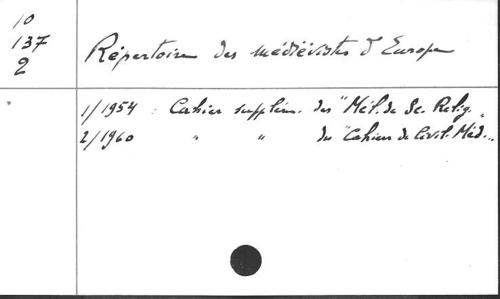 10
137
2
Répertoire des médiévistes d'Europe
1/1954 : Cahier supplém. des "Mél. de Sc. Relig.„
2/1960 " " du "Cahier de Civil. Méd.„